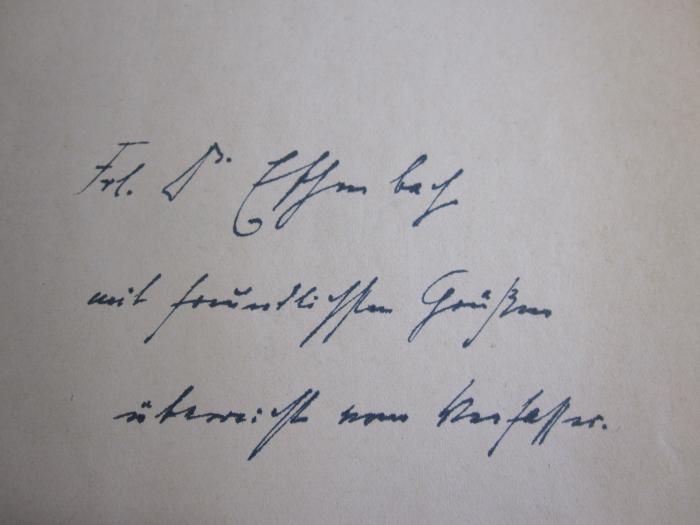 Frl. Dr. Eschenbach
mit freundlichsten Grüßen
überreicht vom Verfasser.